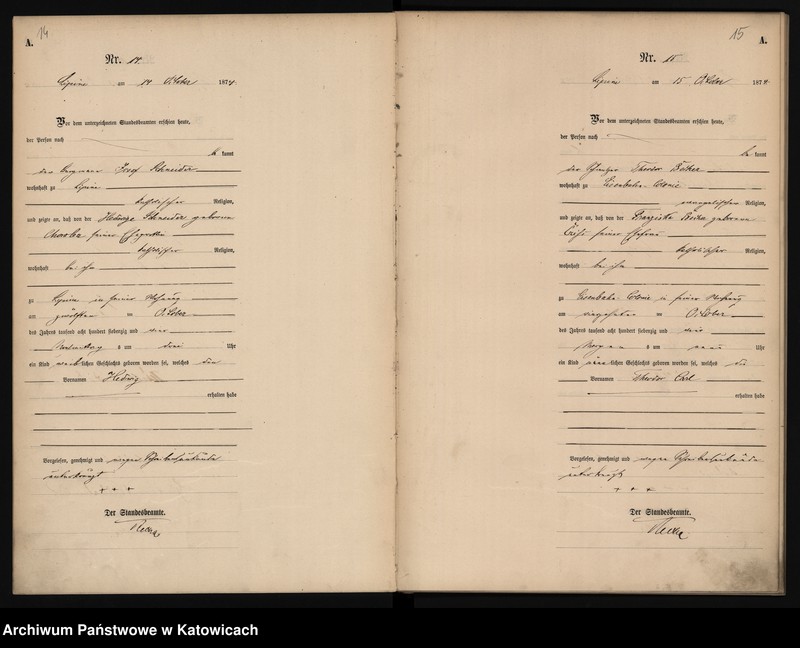 14
A.
Nr. 14.
Lipine am 14 October 1874.
Vor dem unterzeichneten Standesbeamten erschien heute,
der Person nach
be kannt
der Bergmann Josef Schneider
wohnhaft zu Lipine
katholischer Religion,
und zeigte an, daß von der Hedwige Schneider geborene
seiner Ehegattin
katholischer Religion,
wohnhaft bei ihm
zu Lipine in seiner Wohnung
am zwölften October
des Jahres tausend acht hundert siebenzig und vier
Nachmittag s um drei Uhr
ein Kind weiblichen Geschlechts geboren worden sei, welches den
Vornamen Hedwig
erhalten habe
Vorgelesen, genehmigt und wegen
unterkreuzt
+ + +
Der Standesbeamte.
15
A.
Nr. 15
Lipine am 15 October 1874.
Vor dem unterzeichneten Standesbeamten erschien heute,
der Person nach
be kannt
der Theodor
wohnhaft zu Eisenbahn-Colonie
evangelischer Religion,
und zeigte an, daß von der Franziska geborene
seiner Ehefrau
katholischer Religion,
wohnhaft bei ihm
zu Eisenbahn Colonie in seiner Wohnung
am October
des Jahres tausend acht hundert siebenzig und vier
Morgen s um neun Uhr
ein Kind männlichen Geschlechts geboren worden sei, welches die
Vornamen Theodor Carl
erhalten habe
Vorgelesen, genehmigt und wegen
unterkreuzt
+ + +
Der Standesbeamte.
Archiwum Państwowe w Katowicach